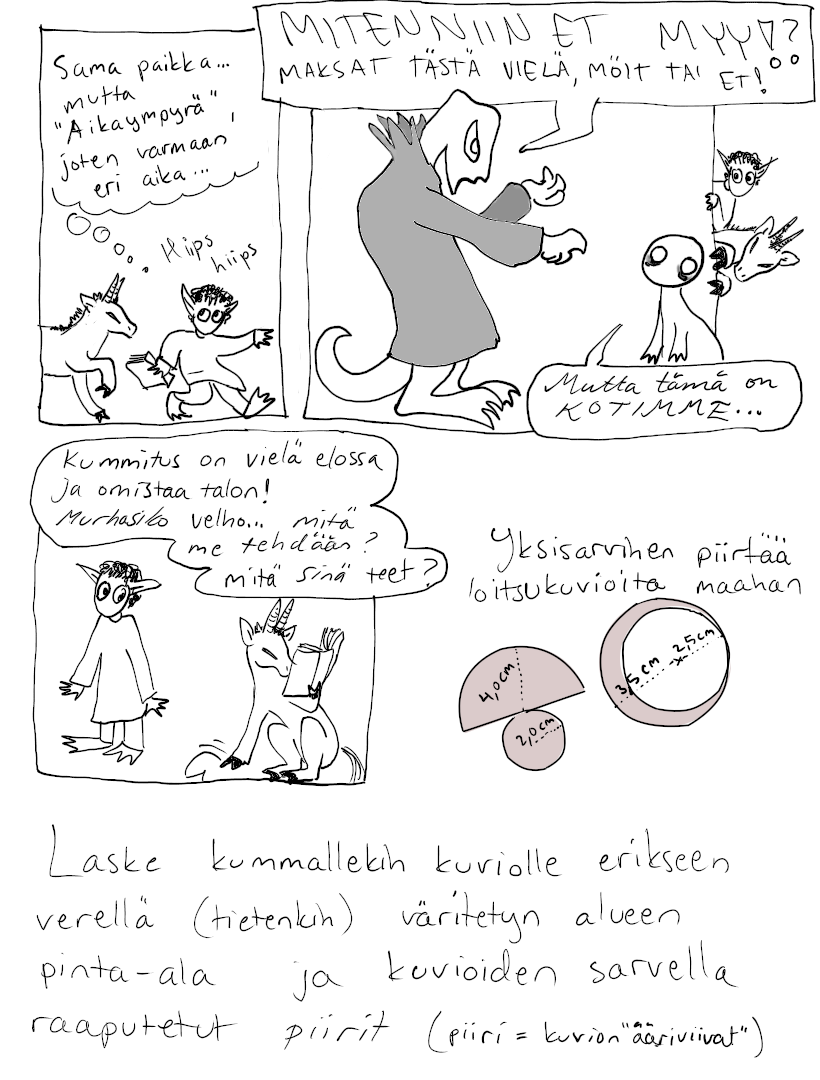 Sama paikka...
mutta
"Aikaympyrä",
joten varmaan
eri aika...
Hiips
hiips
MITENNIIN ET MYY!?
MAKSAT TÄSTÄ VIELÄ, MÖIT TAI ET!
Mutta tämä on
KOTIMME...
Kummitus on vielä elossa
ja omistaa talon!
Murhasiko velho... mitä
me tehdään?
mitä sinä teet?
Yksisarvinen piirtää
loitsukuvioita maahan
4,0cm
2,0cm
3,5cm
2,5cm
Laske kummallekin kuviolle erikseen
verellä (tietenkin) väritetyn alueen
pinta-ala ja kuvioiden sarvella
raaputetut piirit (piiri = kuvion "ääriviivat")